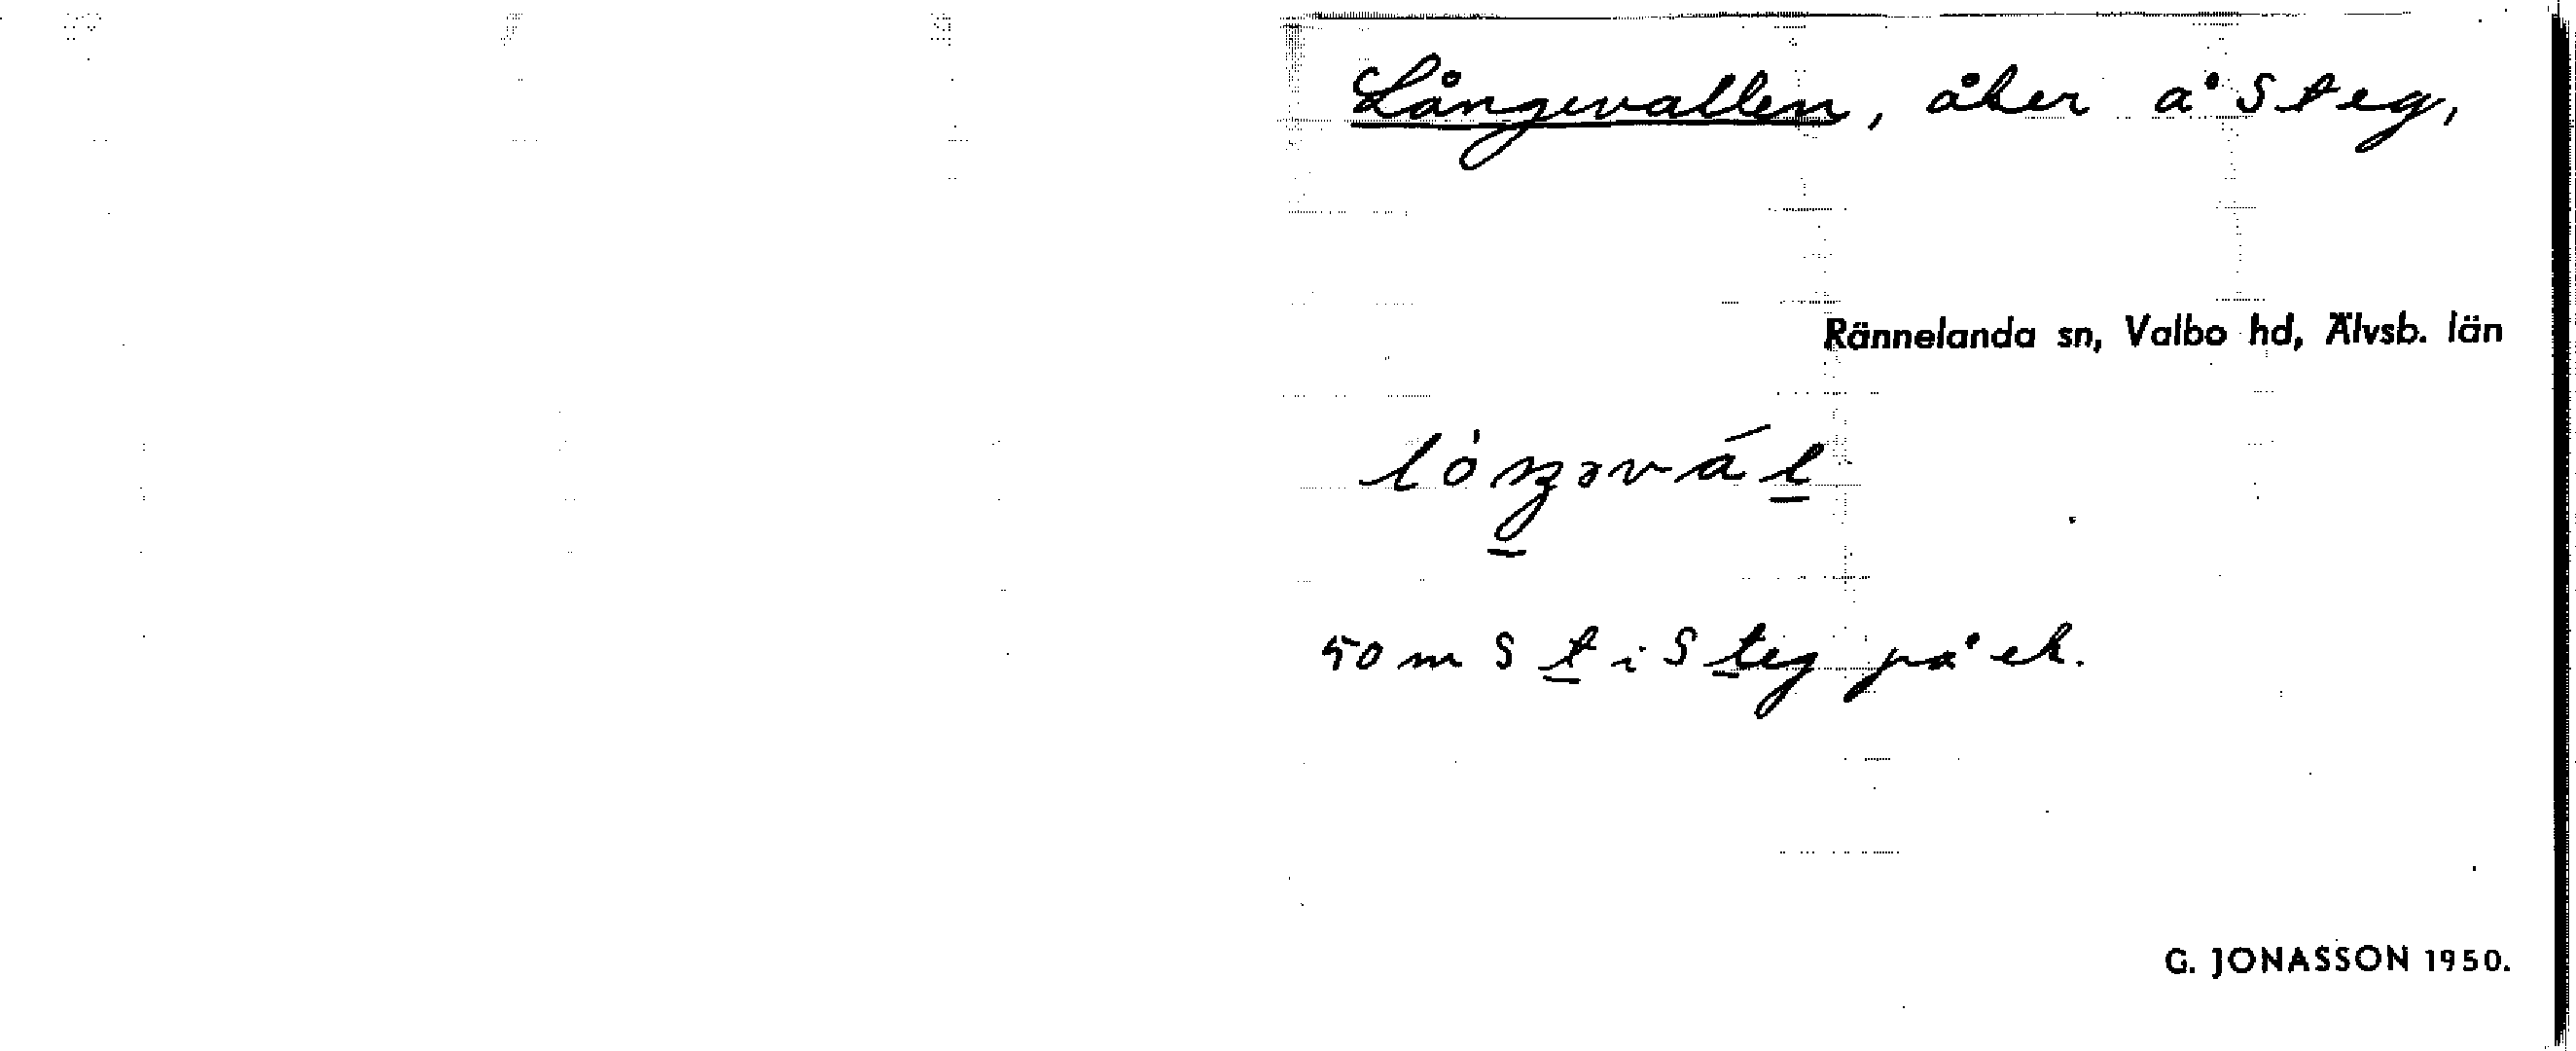 Långevallen, åker å Steg,
Rännelanda sn, Valbo hd, Älvsb. län
50 m S t i Steg på ek.
G. JONASSON 1950.